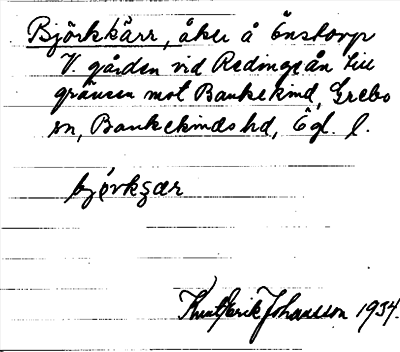 Björkkärr, åker å Önstorp
V. gården vid Redingeån till
gränsen mot Bankekind, Grebo
sn, Bankekinds hd, Ögl. l.
bjǫrkȩær
Knut Erik Johansson 1934.